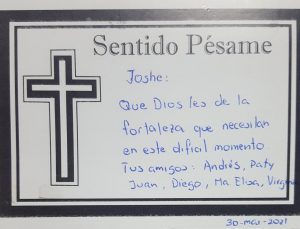 Sentido Pésame
Joshe:
Que Dios les de la
fortaleza que necesitan
en este dificil momento.
Tus amigos: Andrés, Paty
Juan, Diego, Ma Elisa,
30-Mar-2021